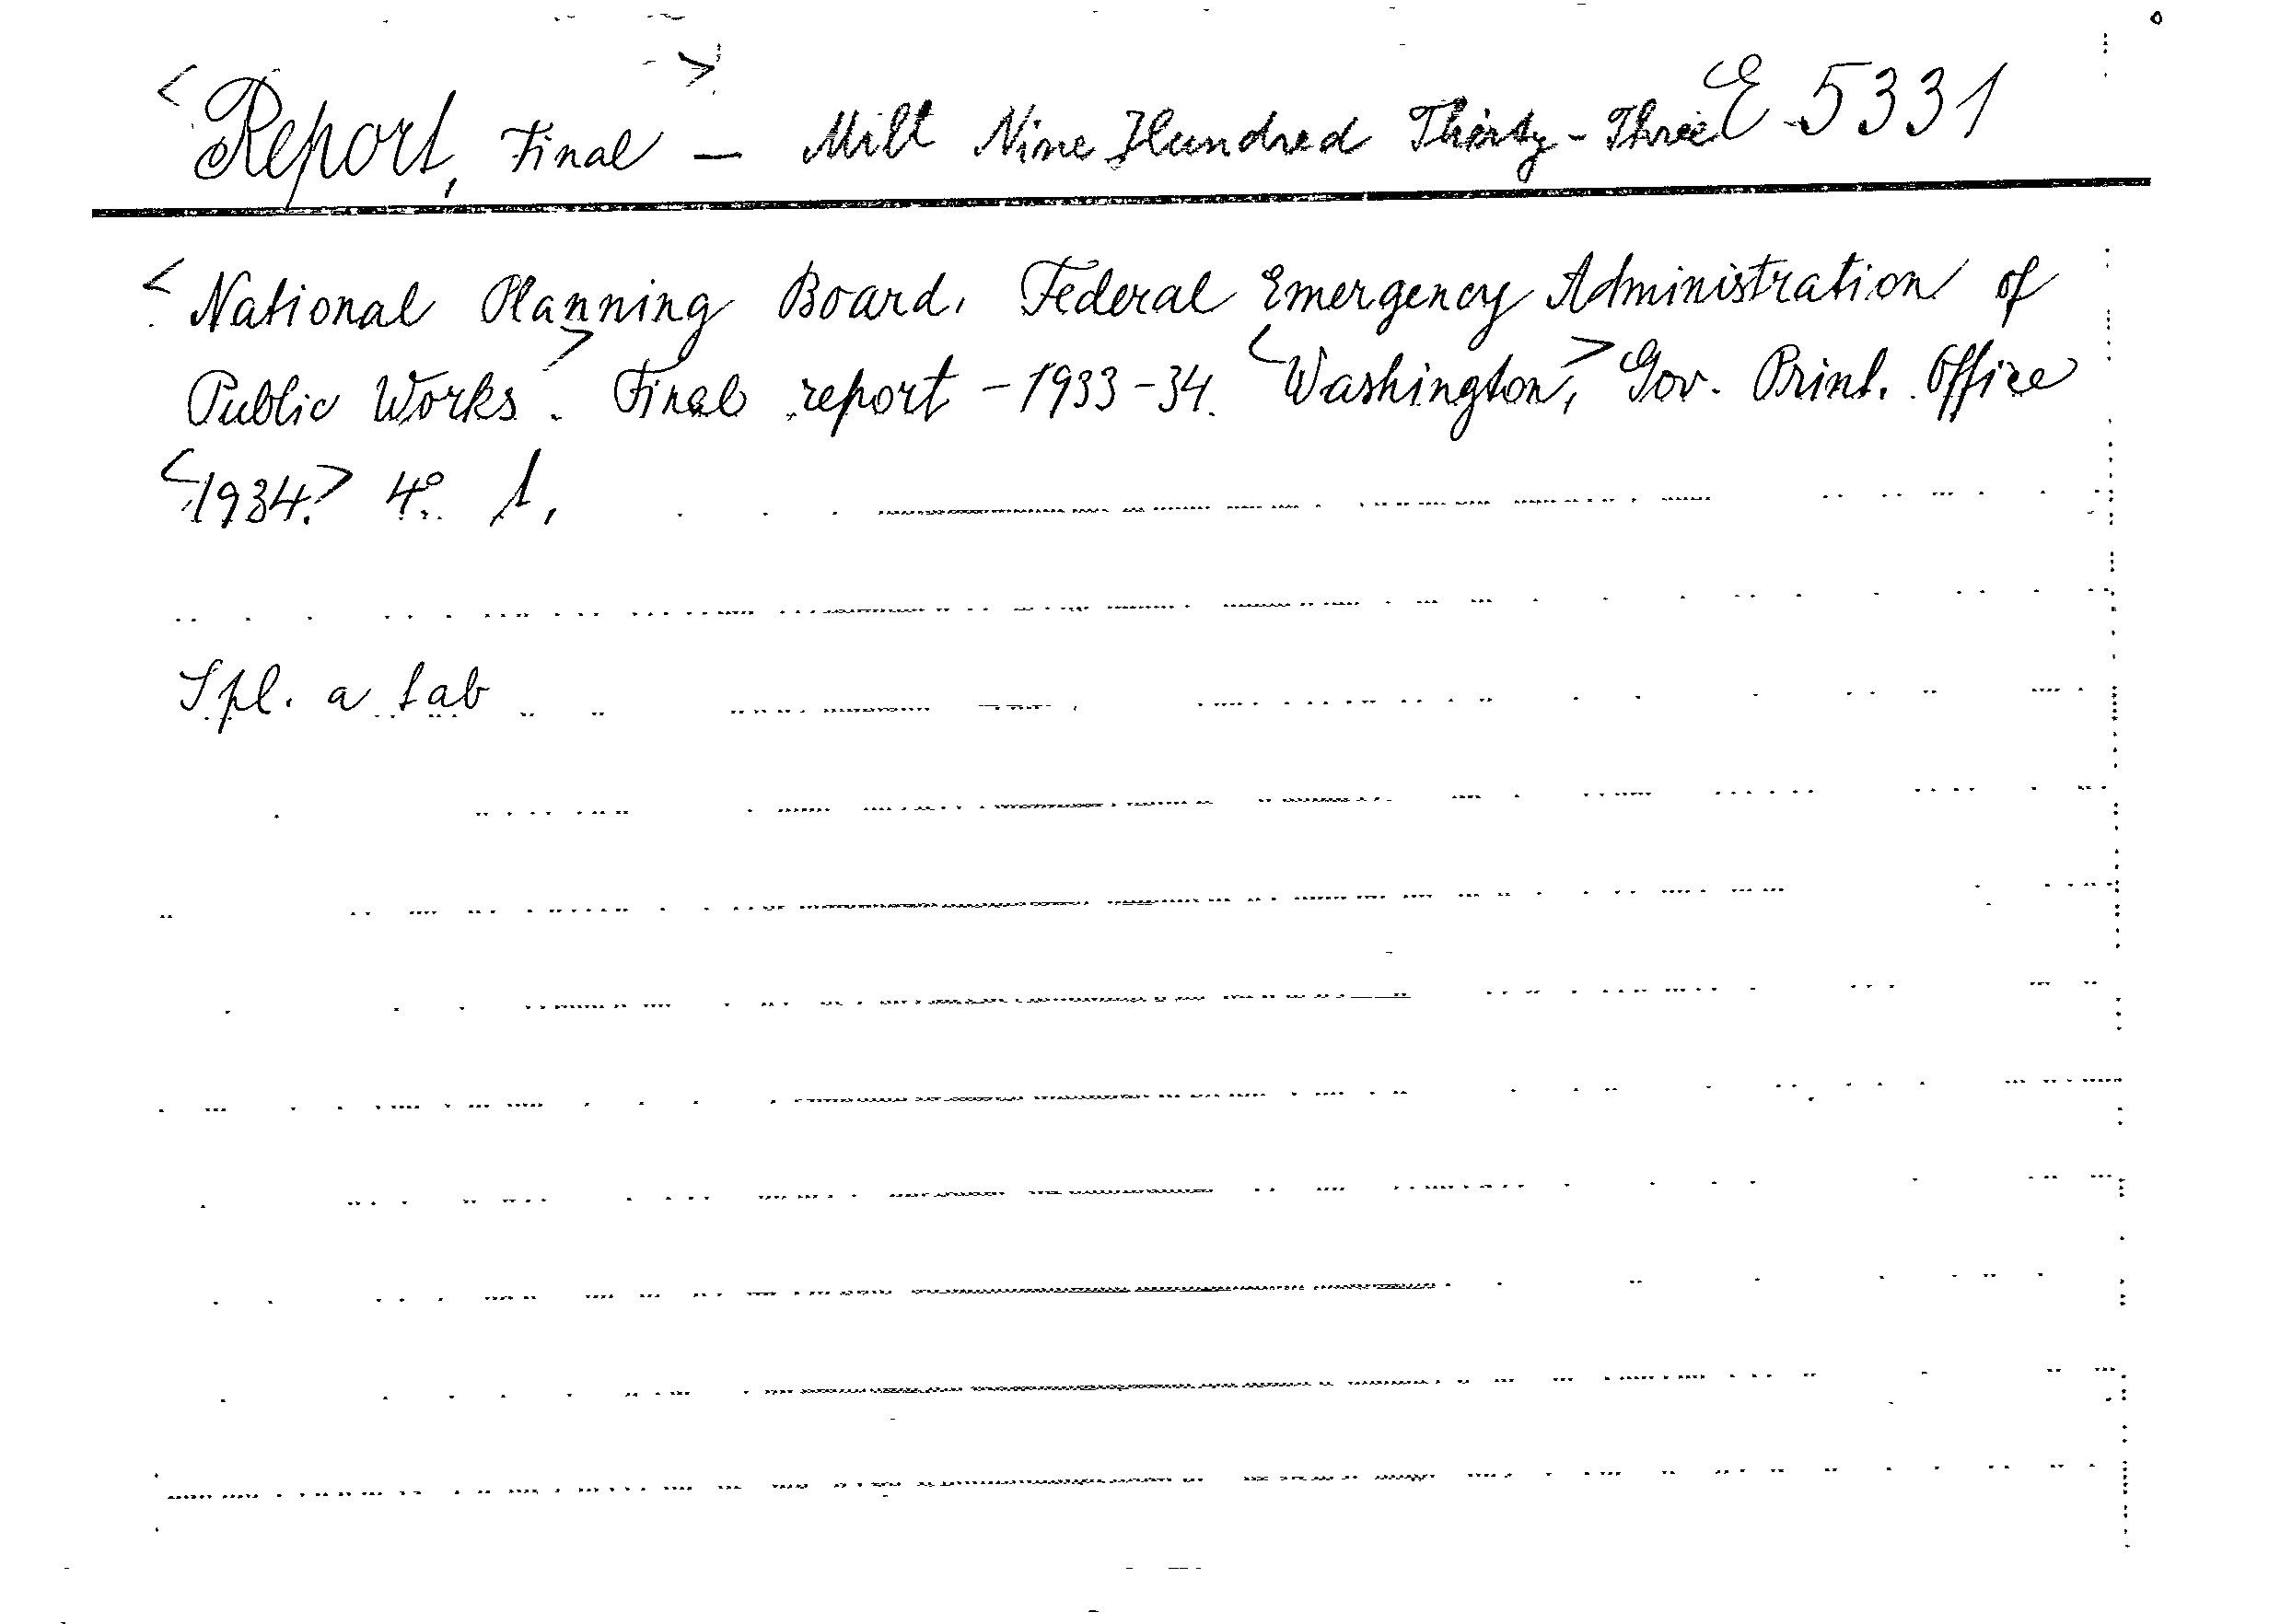 <Report, Final> — Mill Nine Hundred Thirty-Three E 5331
<National Planning Board. Federal Emergency Administration of
Public Works>. Final report - 1933-34. <Washington>, Gov. Print. Office
<1934.> 4°. 1,
S pl. a tab